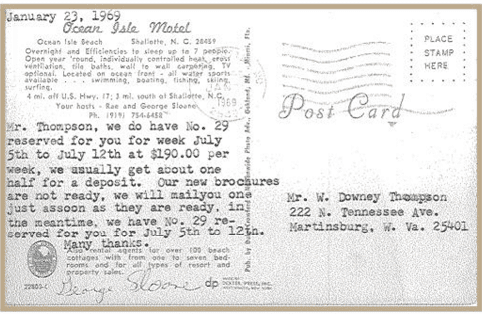 January 23, 1969
Ocean Isle Motel
Ocean Isle Beach Shallotte, N. C. 28459
Overnight and Efficiencies to sleep up to 7 people.
Open year 'round, individually controlled heat, cross
ventilation, tile baths, wall to wall carpeting, TV
optional. Located on ocean front - all water sports
available . . . . swimming, boating, fishing, skiing,
surfing.
4 mi. off U.S. Hwy. 17; 3 mi. south of Shallotte, N.C.
Your hosts - Rae and George Sloane
Ph. (919) 754-6458
Mr. Thompson, we do have No. 29
reserved for you for week July
5th to July 12th at $190.00 per
week, we usually get about one
half for a deposit. Our new brochures
are not ready, we will mailyou one
just assoon as they are ready, in
the meantime, we have No. 29 re-
served for you for July 5th to 12th.
Many thanks.
Also rental agents for over 100 beach
cottages with from one to seven bed-
rooms and for all types of resort and
property sales.
22805-C
George Sloane
dp
DEXTER PRESS, INC.
WEST NYACK, NEW YORK
Pub. by
Miami, Fla.
1969
PLACE
STAMP
HERE
Post Card
Mr. W. Downey Thompson
222 N. Tennessee Ave.
Martinsburg, W. Va. 25401